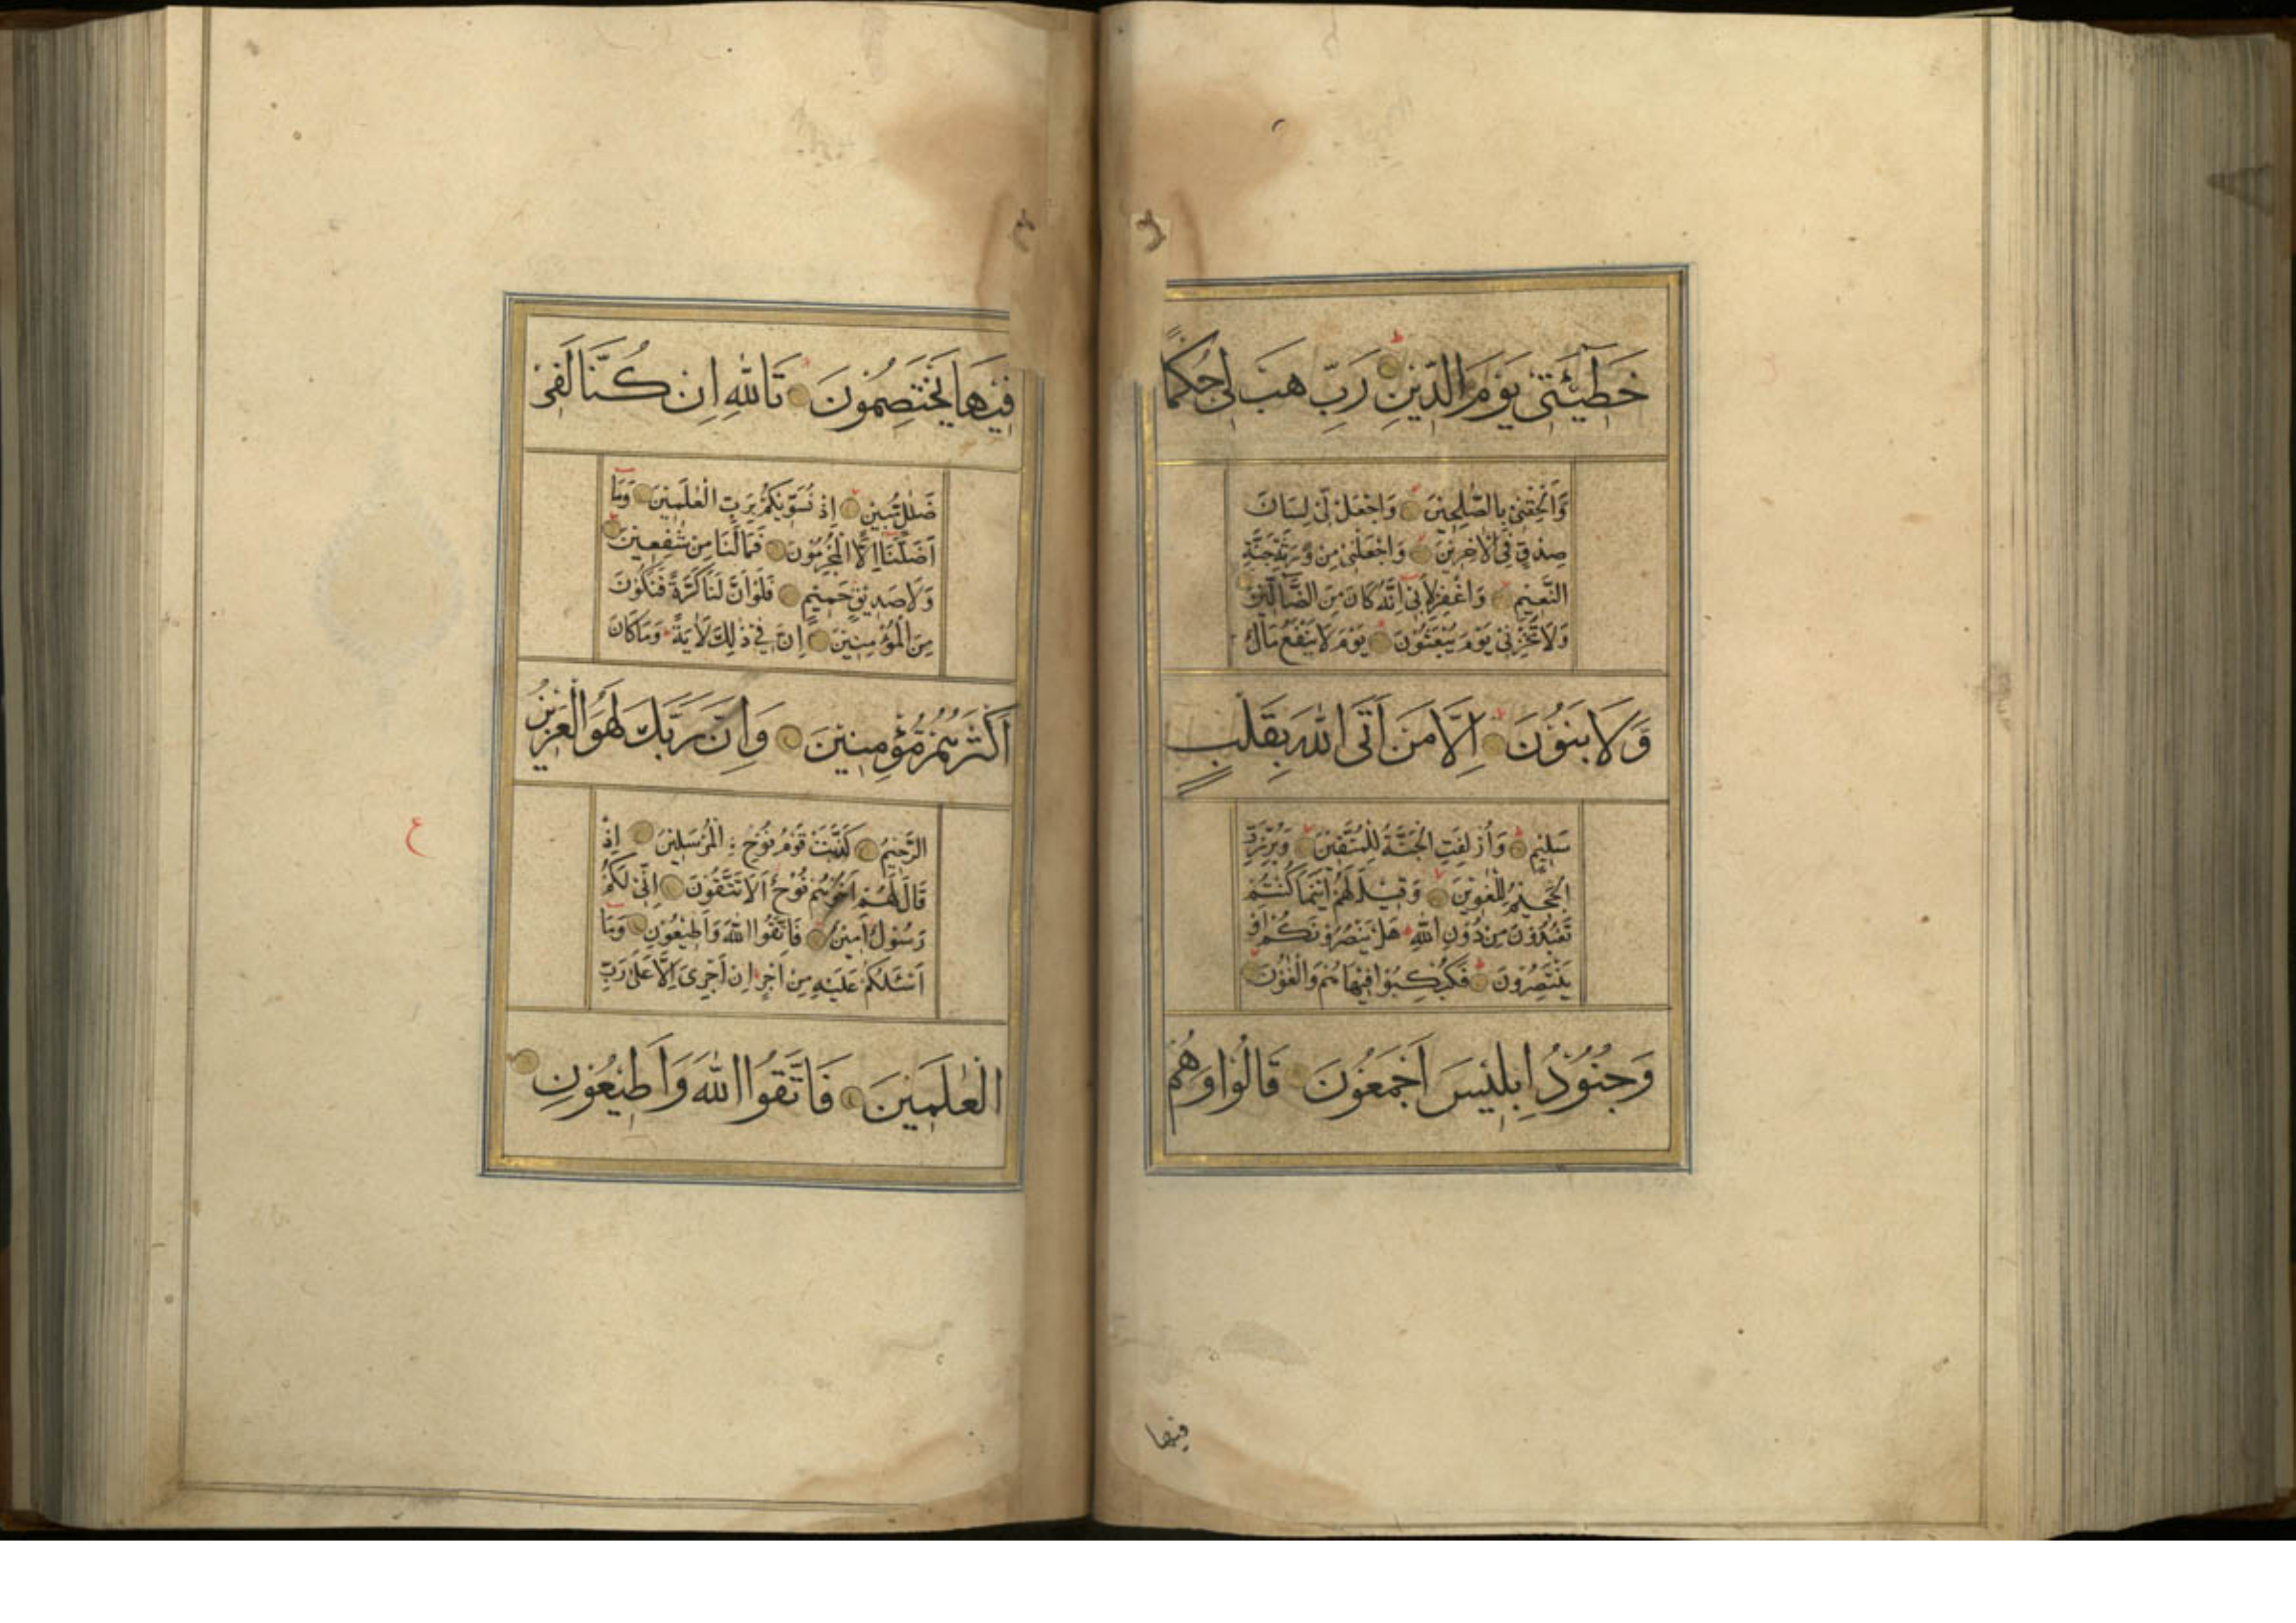 خَطِيْٓئَتِيْ يَوْمَ الدِّيْنِ رَبِّ هَبْ لِيْ حُكْمًا
وَّاَلْحِقْنِيْ بِالصّٰلِحِيْنَ وَاجْعَلْ لِّيْ لِسَانَ
صِدْقٍ فِي الْاٰخِرِيْنَ وَاجْعَلْنِيْ مِنْ وَّرَثَةِ جَنَّةِ
النَّعِيْمِ وَاغْفِرْ لِاَبِيْ اِنَّهٗ كَانَ مِنَ الضَّآلِّيْنَ
وَلَا تُخْزِنِيْ يَوْمَ يُبْعَثُوْنَ يَوْمَ لَا يَنْفَعُ مَالٌ
وَّلَا بَنُوْنَ اِلَّا مَنْ اَتَى اللّٰهَ بِقَلْبٍ
سَلِيْمٍ وَاُزْلِفَتِ الْجَنَّةُ لِلْمُتَّقِيْنَ وَبُرِّزَتِ
الْجَحِيْمُ لِلْغٰوِيْنَ وَقِيْلَ لَهُمْ اَيْنَمَا كُنْتُمْ
تَعْبُدُوْنَ مِنْ دُوْنِ اللّٰهِ هَلْ يَنْصُرُوْنَكُمْ اَوْ
يَنْتَصِرُوْنَ فَكُبْكِبُوْا فِيْهَا هُمْ وَالْغَاوٗنَ
وَجُنُوْدُ اِبْلِيْسَ اَجْمَعُوْنَ قَالُوْا وَهُمْ
فيها
فِيْهَا يَخْتَصِمُوْنَ تَاللّٰهِ اِنْ كُنَّا لَفِيْ
ضَلٰلٍ مُّبِيْنٍ اِذْ نُسَوِّيْكُمْ بِرَبِّ الْعٰلَمِيْنَ وَمَآ
اَضَلَّنَآ اِلَّا الْمُجْرِمُوْنَ فَمَا لَنَا مِنْ شٰفِعِيْنَ
وَلَا صَدِيْقٍ حَمِيْمٍ فَلَوْ اَنَّ لَنَا كَرَّةً فَنَكُوْنَ
مِنَ الْمُؤْمِنِيْنَ اِنَّ فِيْ ذٰلِكَ لَاٰيَةً وَمَا كَانَ
اَكْثَرُهُمْ مُّؤْمِنِيْنَ وَاِنَّ رَبَّكَ لَهُوَ الْعَزِيْزُ
الرَّحِيْمُ كَذَّبَتْ قَوْمُ نُوْحِ ࣙالْمُرْسَلِيْنَ اِذْ
قَالَ لَهُمْ اَخُوْهُمْ نُوْحٌ اَلَا تَتَّقُوْنَ اِنِّيْ لَكُمْ
رَسُوْلٌ اَمِيْنٌ فَاتَّقُوا اللّٰهَ وَاَطِيْعُوْنِ وَمَآ
اَسْئَلُكُمْ عَلَيْهِ مِنْ اَجْرٍ اِنْ اَجْرِيَ اِلَّا عَلٰى رَبِّ
الْعٰلَمِيْنَ فَاتَّقُوا اللّٰهَ وَاَطِيْعُوْنِ
ع